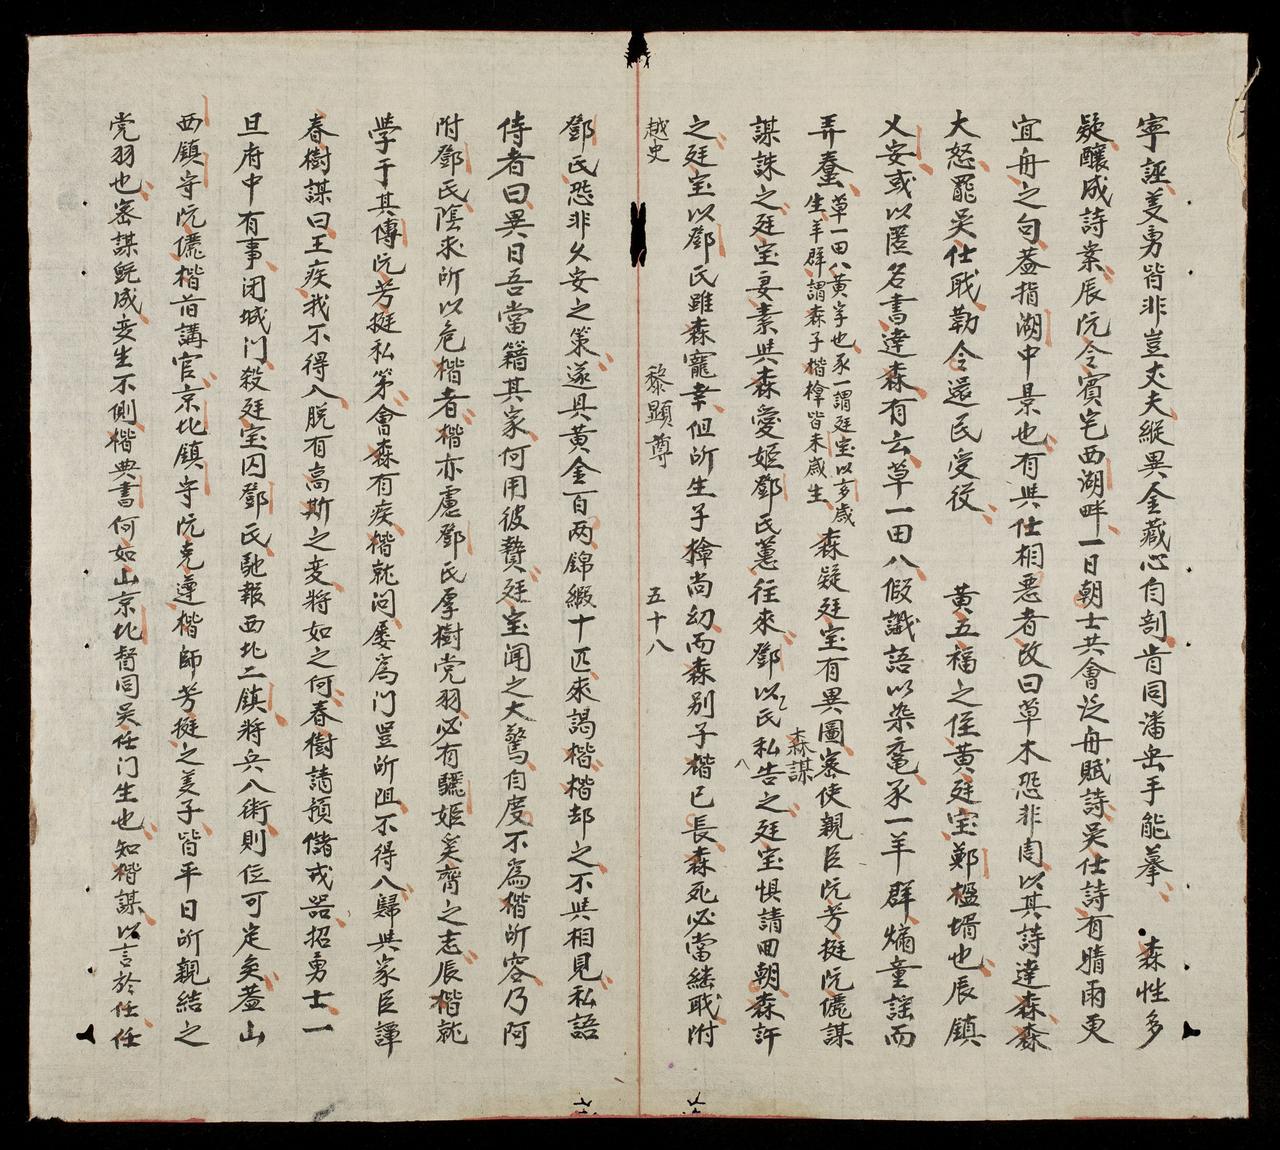 寧誣姜勇皆非豈丈夫縱異金藏心自剖肯同潘岳手能摹　森性多
疑釀成詩案辰阮令賓宅西湖畔一日朝士共會泛舟賦詩吳仕詩有晴雨更
宜舟之句蓋指湖中景也有与仕相惡者改曰草木恐非周以其詩達森森
大怒罷吳仕戝勒令還民受役　黃五福之侄黃廷宝鄭楹壻也辰鎮
乂安或以匿名書達森有云草一田八假讖語以染毫豕一羊群煽童謠而
弄蠢
草一田八黃字也豕一謂廷宝以亥歲
生羊群謂森子楷橦皆未歲生
森疑廷宝有異圖密使親臣阮芳挺阮儷謀
森謀
謀誅之廷宝妻素与森愛姬鄧氏蕙往來鄧以氏私告之廷宝惧請回朝森許
之廷宝以鄧氏雖森寵幸但所生子橦尚幼而森別子楷已長森死必當継戝附
越史　黎顯尊　五十八
鄧氏恐非久安之策遂具黃金百两錦緞十匹來謁楷楷却之不与相見私語
侍者曰異日吾當籍其家何用彼贄廷宝闻之大驚自度不為楷所容乃阿
附鄧氏陰求所以危楷者楷亦慮鄧氏厚樹党羽必有驪姬奚齊之志辰楷就
学于其傅阮芳挺私第會森有疾楷就问屢為门豈所阻不得入歸与家臣譚
春樹謀曰王疾我不得入脱有高斯之变將如之何春樹請預儲戎器招勇士一
旦府中有事闭城门殺廷宝囚鄧氏馳報西北二鎮將兵入衛則位可定矣蓋山
西鎮守阮儷楷首講官京北鎮守阮克遵楷師芳挺之姜子皆平日所親結之
党羽也密謀既成变生不側楷典書何如山京北督同吳仕门生也知楷謀以言於仕仕